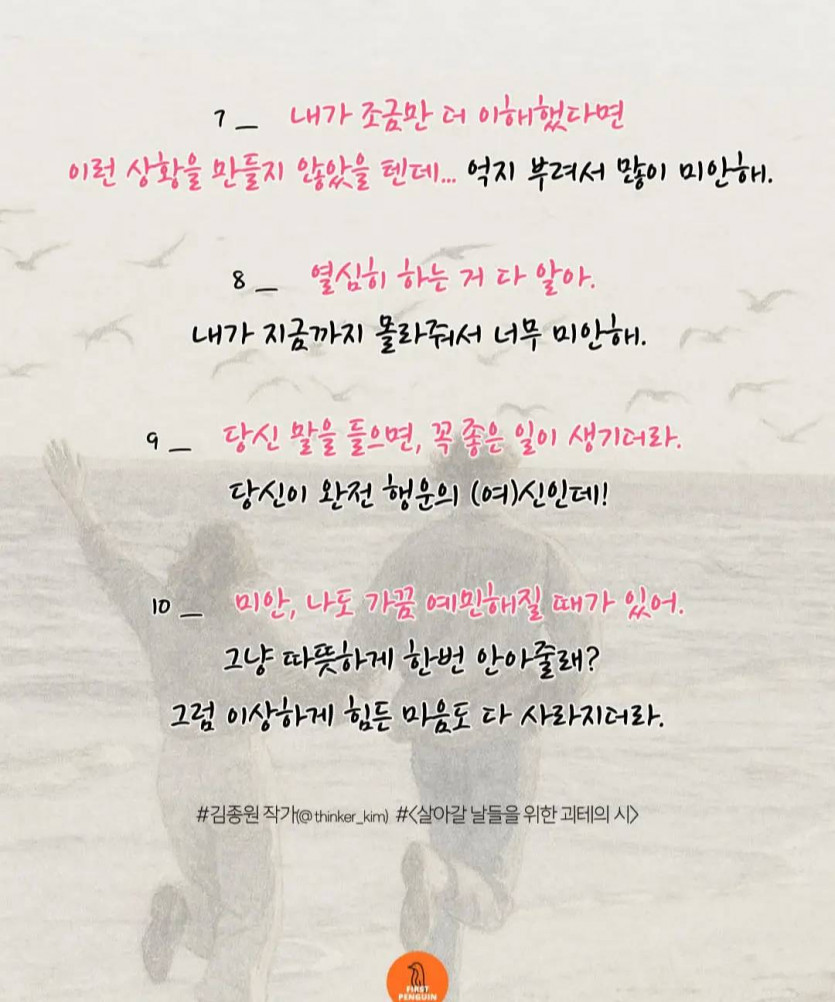 7 _ 내가 조금만 더 이해했다면
이런 상황을 만들지 않았을 텐데... 억지 부려서 많이 미안해.
8 _ 열심히 하는 거 다 알아.
내가 지금까지 몰라줘서 너무 미안해.
9 _ 당신 말을 들으면, 꼭 좋은 일이 생기더라.
당신이 완전 행운의 (여)신인데!
10 _ 미안, 나도 가끔 예민해질 때가 있어.
그냥 따뜻하게 한번 안아줄래?
그럼 이상하게 힘든 마음도 다 사라지더라.
#김종원 작가(@thinker_kim) #<살아갈 날들을 위한 괴테의 시>
FIRST
PENGUIN